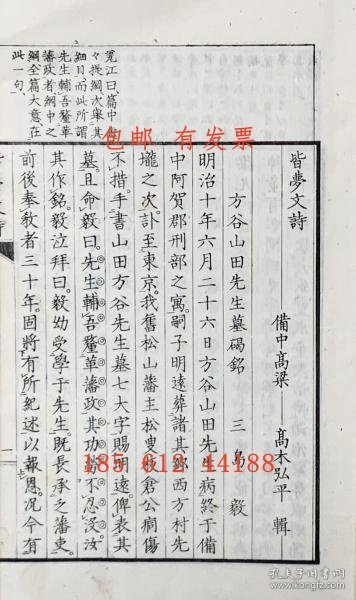 寛江曰、篇中
々提綱、次舉其
細目、而此所謂
先生輔吾釐革
藩政者、綱中之
綱、全篇大意、在
此一句、
皆夢文詩
備中高梁 高木弘平 輯
方谷山田先生墓碣銘 三島 毅
明治十年六月二十六日、方谷山田先生病終于備
中阿賀郡刑部之寓。嗣子明遠、葬諸其鄉西方村先
壠之次。訃至東京。我舊松山藩主松叟板倉公、痛傷
不措。手書山田方谷先生墓七大字、賜明遠。俾表其
墓。且命毅曰。先生輔吾釐革藩政、其功勞不忍沒。汝
其作銘。毅泣拜曰。毅幼受學于先生。既長承之藩吏。
前後奉敎者三十年。固將有所紀述以報恩。況今有
包邮 有发票
185 612 44188
孔夫子旧书网